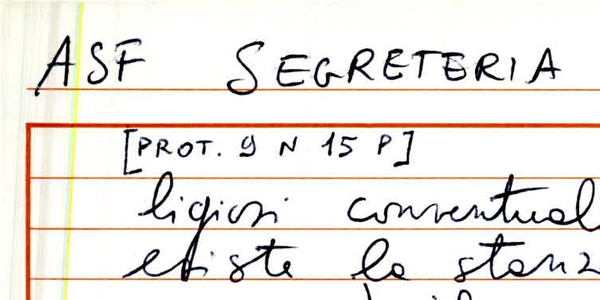 ASF SEGRETERIA
[PROT. 9 N 15 P]
ligiosi conventual
esiste la stanz